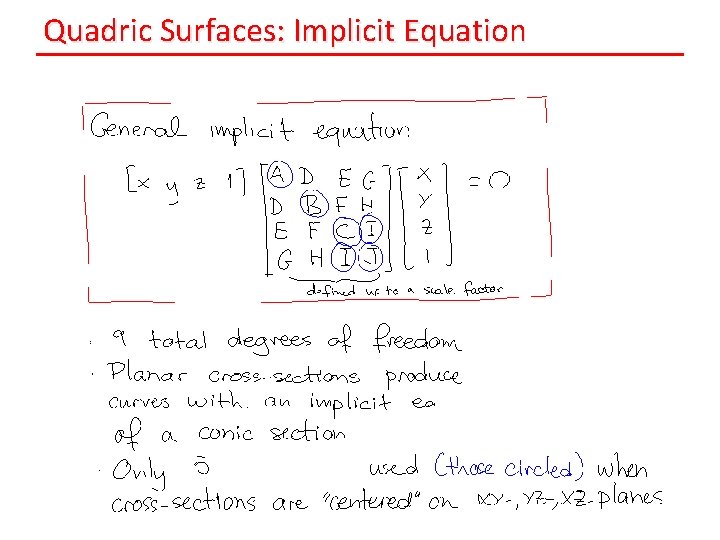 Quadric Surfaces: Implicit Equation
General implicit equation:
[x y z 1] [A D E G] [x] = 0
D B F H y
E F C I z
G H I J 1
defined up to a scale factor
· 9 total degrees of freedom
· Planar cross-sections produce
curves with an implicit eq
of a conic section
· Only 5 used (those circled) when
cross-sections are "centered" on XY-, YZ-, XZ-planes